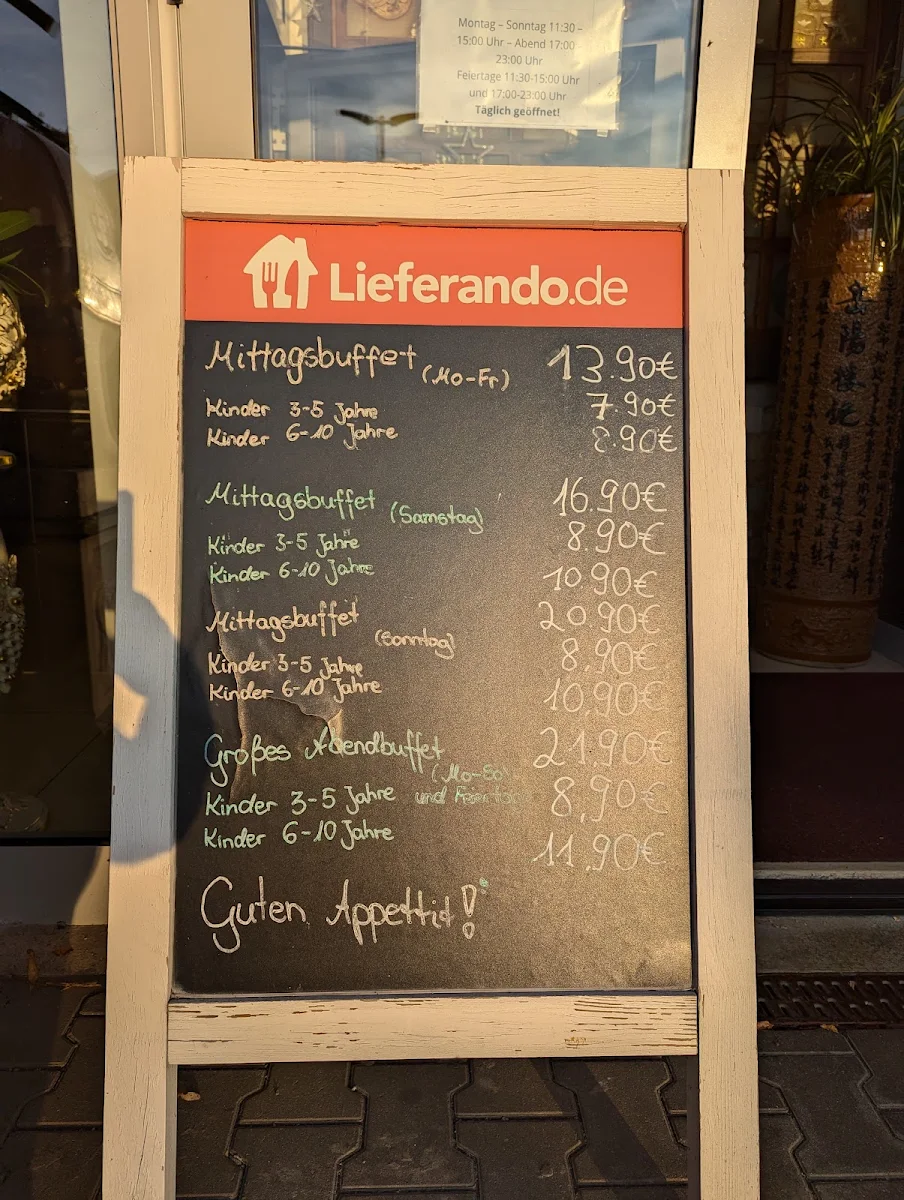 Montag – Sonntag 11:30 –
15:00 Uhr – Abend 17:00
23:00 Uhr
Feiertage 11:30-15:00 Uhr
und 17:00-23:00 Uhr
Täglich geöffnet!
Lieferando.de
Mittagsbuffet (Mo-Fr) 13.90€
Kinder 3-5 Jahre 7.90€
Kinder 6-10 Jahre 8.90€
Mittagsbuffet (Samstag) 16.90€
Kinder 3-5 Jahre 8.90€
Kinder 6-10 Jahre 10.90€
Mittagsbuffet (Sonntag) 20.90€
Kinder 3-5 Jahre 8,90€
Kinder 6-10 Jahre 10,90€
Großes Abendbuffet 21,90€
(Mo-So)
Kinder 3-5 Jahre und 8,90€
Kinder 6-10 Jahre 11,90€
Guten Appettit!